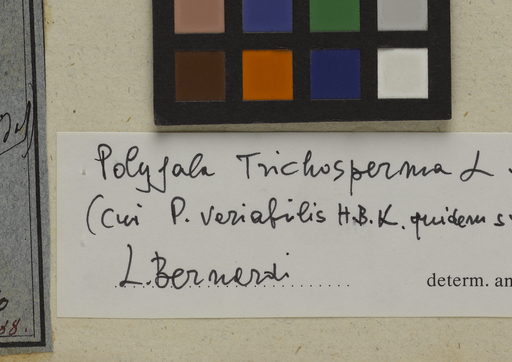 Polygala Trichosperma L
(cui P. variabilis H.B.K. quidem
L. Bernardi
determ. an
38.